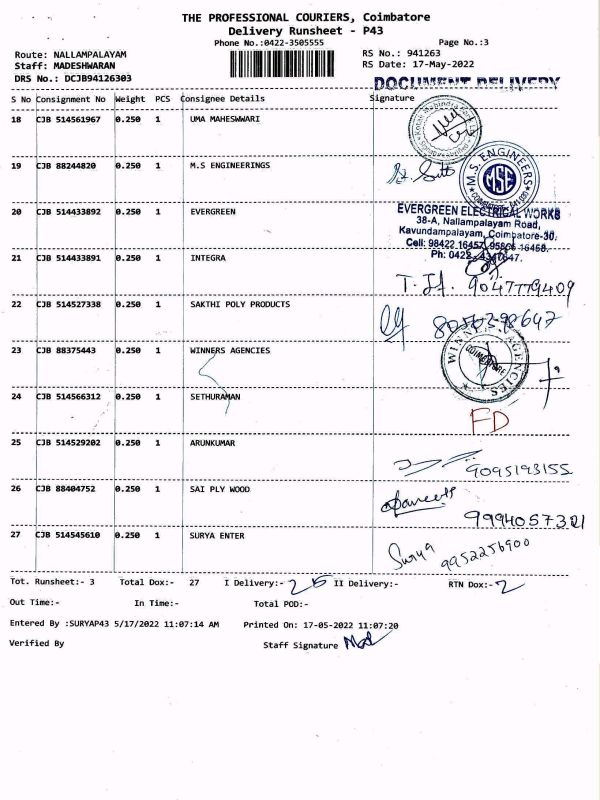 THE PROFESSIONAL COURIERS, Coimbatore
Delivery Runsheet - P43
Phone No.:0422-3505555
Page No.:3
Route: NALLAMPALAYAM
RS No.: 941263
Staff: MADESHWARAN
RS Date: 17-May-2022
DRS No.: DCJB94126303
DOCUMENT DELIVERY
S No Consignment No Weight PCS Consignee Details Signature
18 CJB 514561967 0.250 1 UMA MAHESWWARI
19 CJB 88244820 0.250 1 M.S ENGINEERINGS
M.S. ENGINEERS
MSE
20 CJB 514433892 0.250 1 EVERGREEN
EVERGREEN ELECTRICAL WORKS
38-A, Nallampalayam Road,
Kavundampalayam, Coimbatore-30.
Cell: 98422 16457, 95866 16458.
Ph: 0422
21 CJB 514433891 0.250 1 INTEGRA
9047779409
22 CJB 514527338 0.250 1 SAKTHI POLY PRODUCTS
23 CJB 88375443 0.250 1 WINNERS AGENCIES
WINNERS AGENCIES
COIMBATORE
24 CJB 514566312 0.250 1 SETHURAMAN
FD
25 CJB 514529202 0.250 1 ARUNKUMAR
9095193155
26 CJB 88404752 0.250 1 SAI PLY WOOD
9994057321
27 CJB 514545610 0.250 1 SURYA ENTER
Surya 9952256900
Tot. Runsheet:- 3 Total Dox:- 27 I Delivery:- 25 II Delivery:- RTN Dox:- 2
Out Time:- In Time:- Total POD:-
Entered By :SURYAP43 5/17/2022 11:07:14 AM Printed On: 17-05-2022 11:07:20
Verified By Staff Signature